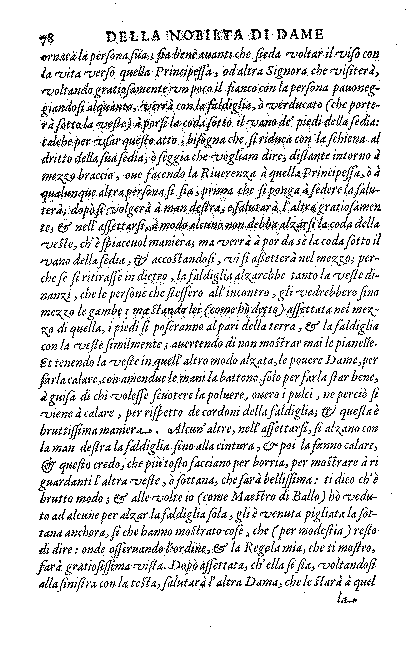 78 DELLA NOBILTA DI DAME
ornata la persona sua; sia bene auanti che sieda voltar il viso con
la vita verso quella Principessa, od altra Signora che visiterà,
voltando gratiosamente un poco il fianco con la persona pauoneg-
giandosi alquanto, verrà con la faldiglia, ò verducato (che porte-
rà sotto la veste) à porsi la coda sotto il vano de' piedi della sedia:
talche per vsar questo atto, bisogna che si riduca con la schiena al
dritto della sua sedia, ò seggia che vogliam dire, distante intorno à
mezzo braccio, oue facendo la Riuerenza à quella Principessa, ò à
qualunque altra persona si sia, prima che si ponga à sedere la salu-
terà; dopò si volgerà a man destra, e salutarà l'altra gratiosamen
te, & nell'assettarsi, à modo alcuno non debba alzarsi la coda della
veste, ch'è spiaceuol maniera, ma verrà à por da se la coda sotto il
vano della sedia, & accostandosi, vi si assetterà nel mezzo; per-
che se si ritirasse in dietro, la faldiglia alzarebbe tanto la veste di-
nanzi, che le persone che stessero all'incontro, gli vedrebbero sino
mezzo le gambe: ma stando lei (come hò detto) assettata nel mez-
zo di quella, i piedi si poseranno al pari della terra, & la faldiglia
con la veste similmente; auertendo di non mostrar mai le pianelle.
Et tenendo la veste in quell'altro modo alzata, le pouere Dame, per
farla calare, con amendue le mani la battono solo per farla star bene,
à guisa di chi volesse scuotere la poluere, ouero i pulci, ne perciò si
viene à calare, per rispetto de cordoni della faldiglia; & questa è
bruttissima maniera. Alcun'altre, nell'assettarsi, si alzano con
la man destra la faldiglia sino alla cintura, & poi la fanno calare,
& questo credo, che più tosto facciano per borria, per mostrare à ri
guardanti l'altra veste, ò sottana, che sarà bellissima: ti dico ch'è
brutto modo; & alle volte io (come Maestro di Ballo) hò vedu-
to ad alcune per alzar la faldiglia sola, gli è venuta pigliata la sot-
tana anchora, sì che hanno mostrato cose, che (per modestia) resto
di dire: onde osseruando l'ordine, & la Regola mia, che ti mostro,
farà gratiosissima vista. Dopò assettata, ch'ella si sia, voltandosi
alla sinistra con la testa, salutarà l'altra Dama, che le starà à quel
la